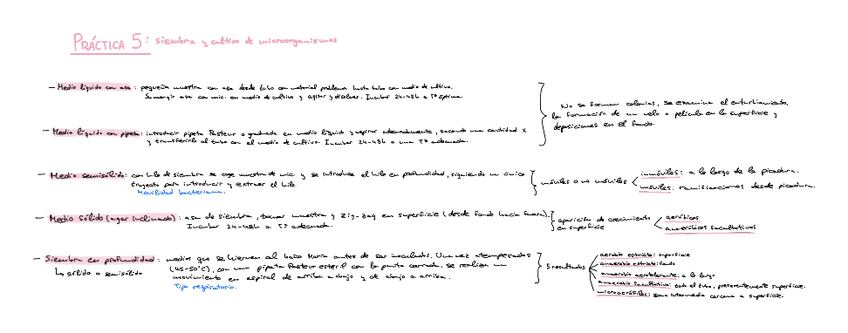 PRÁCTICA 5: siembra y cultivo de microorganismos
- Medio líquido con asa: pequeña muestra con asa desde tubo con material problema hasta tubo con medio de cultivo.
Sumergir asa con mic. en medio de cultivo y agitar y disolver. Incubar 24-48h a Tª óptima.
- Medio líquido con pipeta: introducir pipeta Pasteur o graduada en medio líquido y aspirar adecuadamente, sacando una cantidad x
y transferirla al tubo con el medio de cultivo. Incubar 24-48h a una Tª adecuada.
No se forman colonias, se examina el enturbiamiento,
la formación de un velo o película en la superficie y
deposiciones en el fondo.
- Medio semisólido: con hilo de siembra se coge muestra de mic y se introduce el hilo en profundidad, siguiendo un único
trayecto para introducir y extraer el hilo.
Movilidad bacteriana.
móviles o no móviles
inmóviles: a lo largo de la picadura.
móviles: ramificaciones desde picadura.
- Medio sólido (agar inclinado): asa de siembra, tomar muestra y zig-zag en superficie (desde fondo hacia fuera).
Incubar 24-48h a Tª adecuada.
aparición de crecimiento
en superficie
aeróbicos
anaeróbicos facultativos
- Siembra en profundidad: medios que se hierven al baño María antes de ser inoculados. Una vez atemperados
↳ sólido o semisólido
(45-50°C), con una pipeta Pasteur estéril con la punta cerrada, se realiza un
movimiento en espiral de arriba a abajo y de abajo a arriba.
Tipo respiratorio.
5 resultados
aerobio estricto: superficie
anaerobio estricto: fondo
anaerobio aerotolerante: a lo largo
anaerobio facultativo: todo el tubo, preferentemente superficie.
microaerófilos: zona intermedia cercana a superficie.